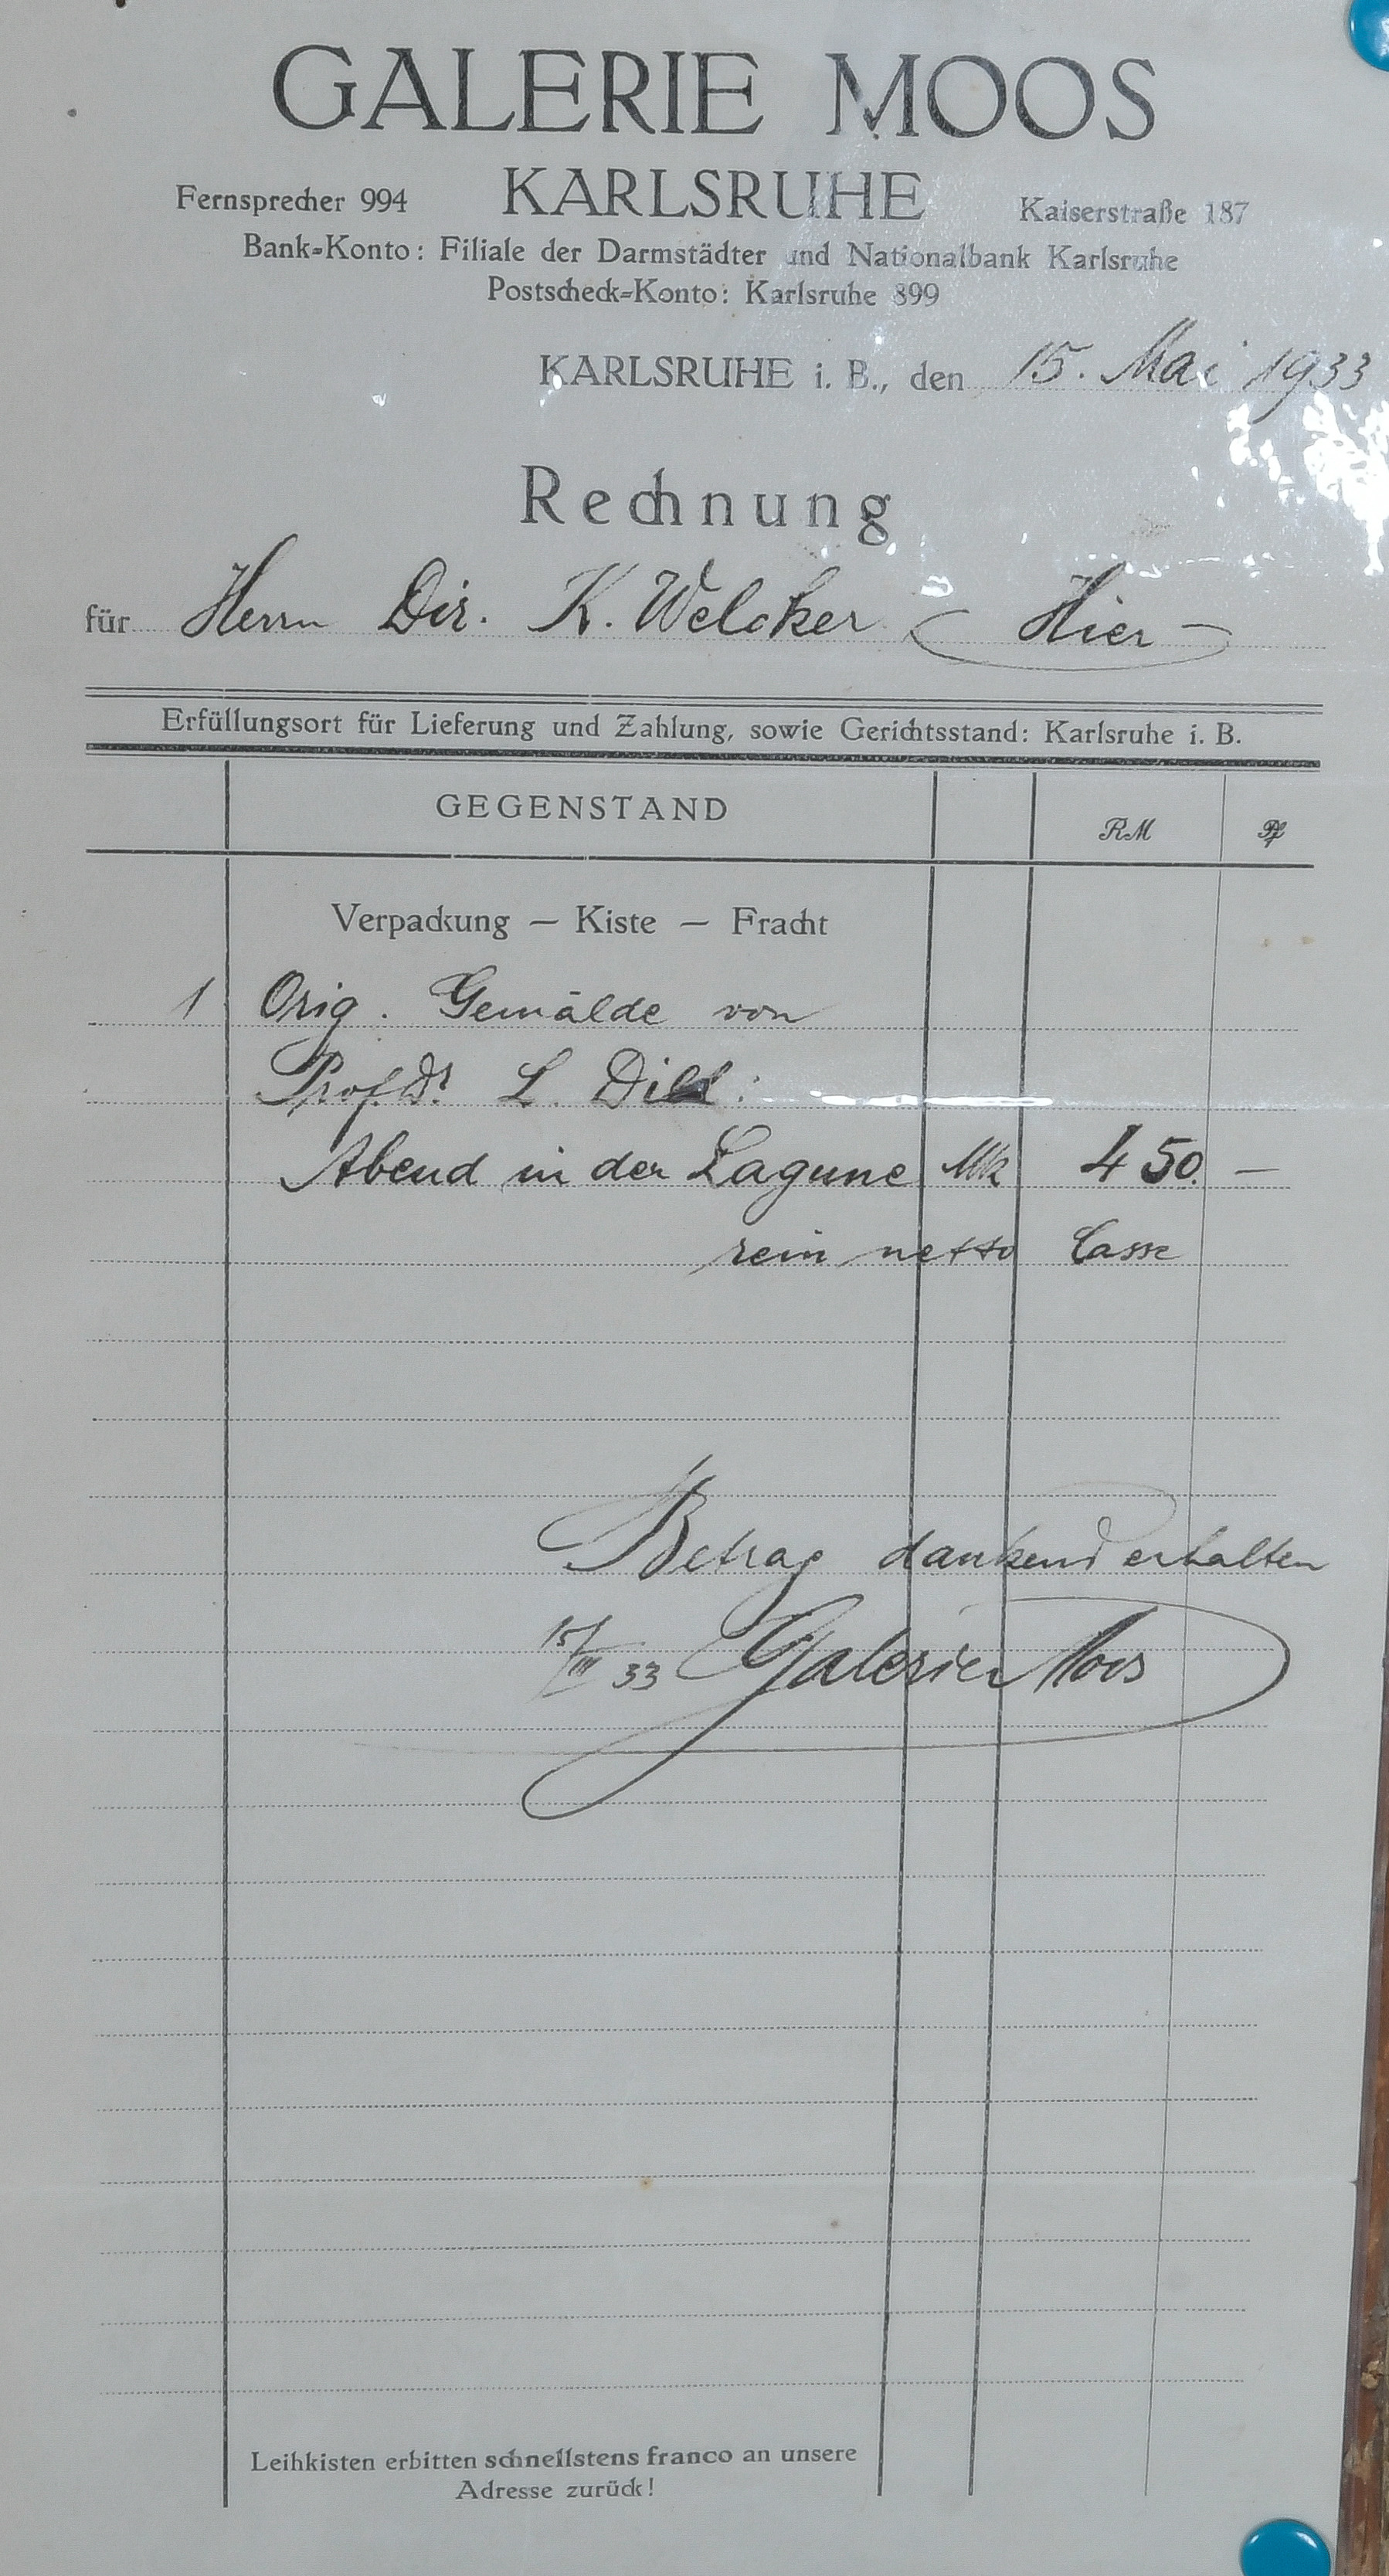 GALERIE MOOS
Fernsprecher 994 KARLSRUHE Kaiserstraße 187
Bank-Konto: Filiale der Darmstädter und Nationalbank Karlsruhe
Postscheck-Konto: Karlsruhe 899
KARLSRUHE i. B., den 15. Mai 1933
Rechnung
für Herrn Dir. K. Welcker Hier -
Erfüllungsort für Lieferung und Zahlung, sowie Gerichtsstand: Karlsruhe i. B.
GEGENSTAND RM Pf
Verpackung — Kiste — Fracht
1 Orig. Gemälde von
Prof. Dr L. Dill:
Abend in der Lagune Mk 450. —
rein netto Casse
Betrag dankend erhalten
15/III 33 Galerie Moos
Leihkisten erbitten schnellstens franco an unsere
Adresse zurück!